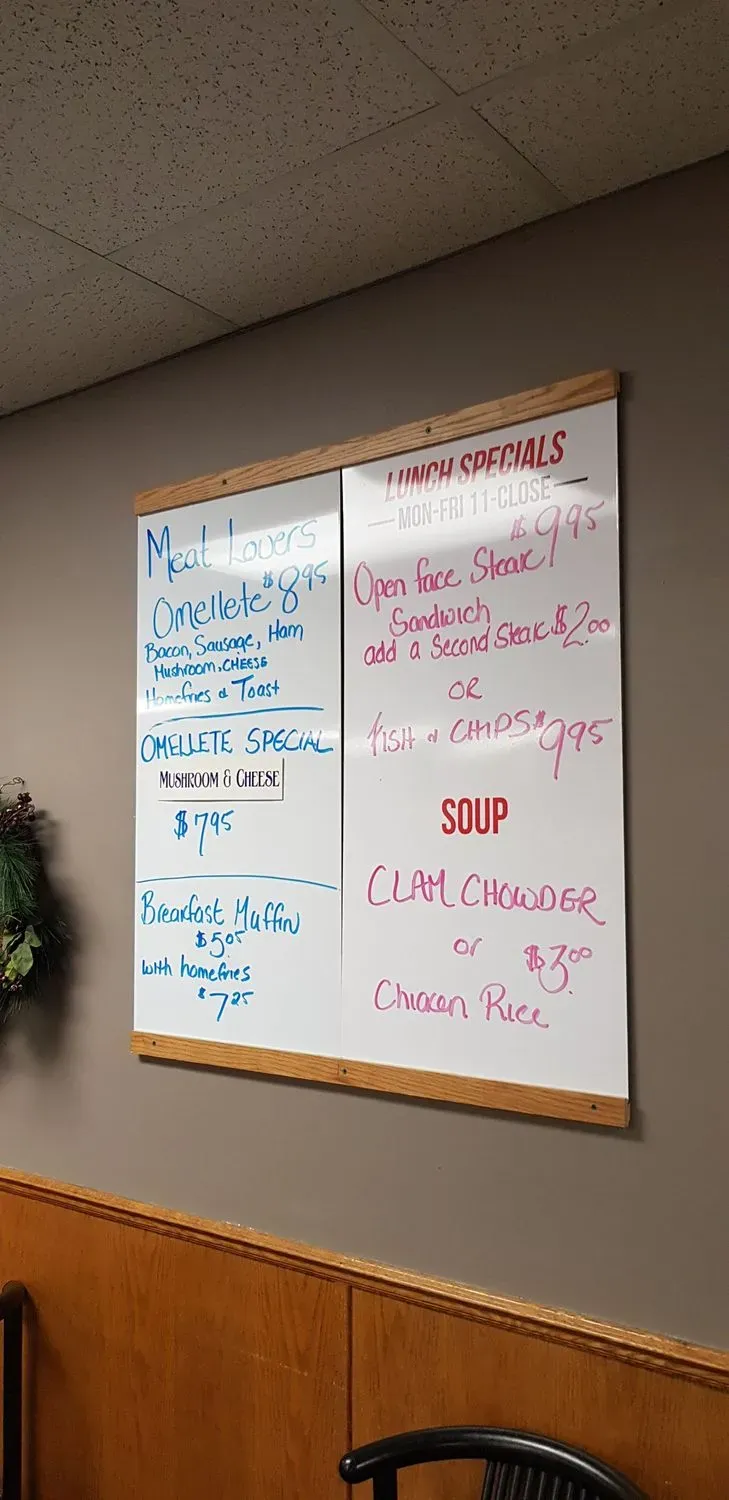 Meat Lovers
Omellete $8.95
Bacon, Sausage, Ham
Mushroom, CHEESE
Homefries & Toast
OMELLETE SPECIAL
MUSHROOM & CHEESE
$7.95
Breakfast Muffin
$5.05
with homefries
$7.25
LUNCH SPECIALS
MON-FRI 11-CLOSE
$9.95
Open face Steak
Sandwich
add a Second Steak $2.00
OR
FISH & CHIPS $9.95
SOUP
CLAM CHOWDER
or $3.00
Chicken Rice